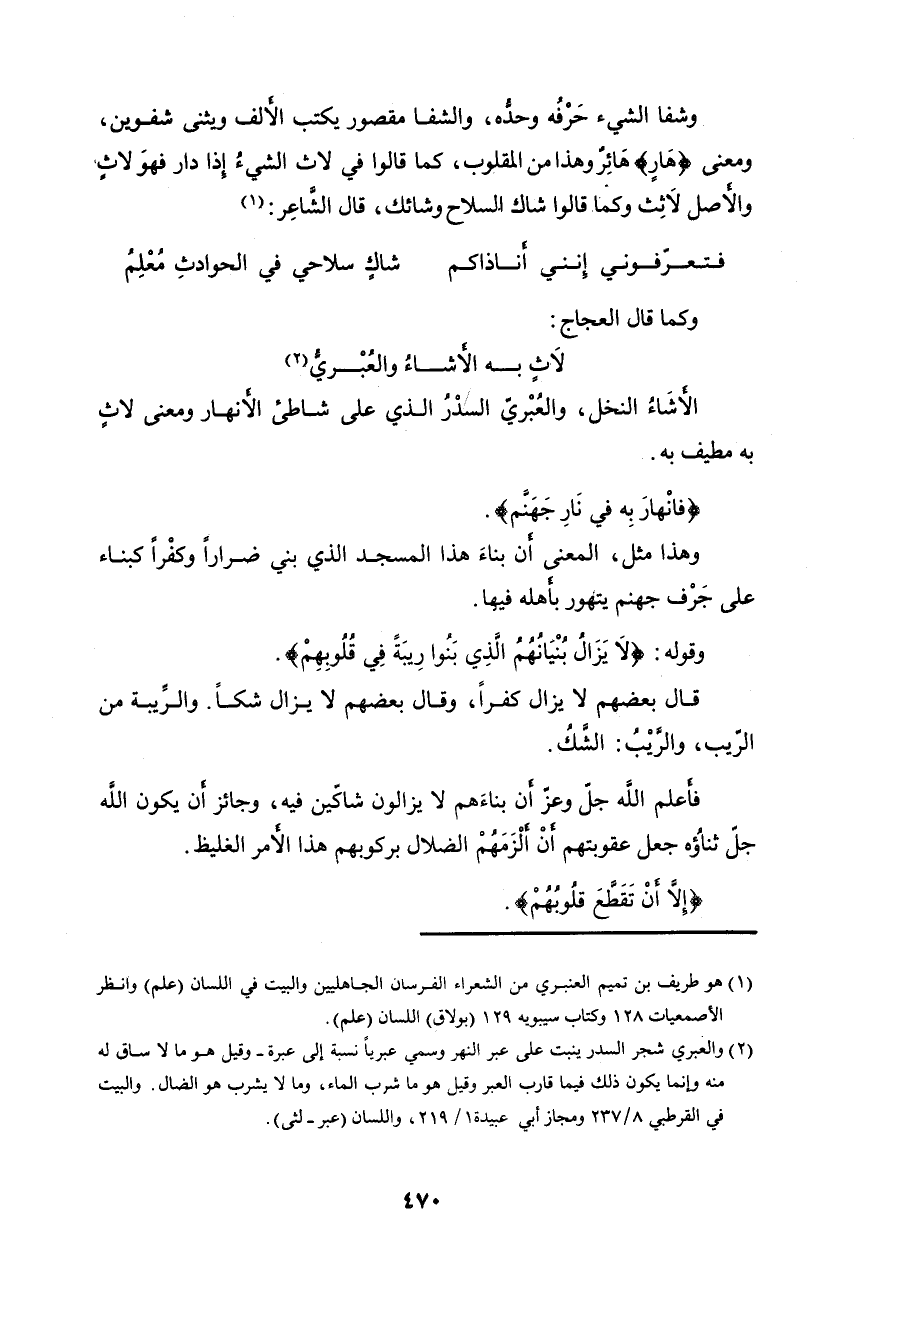 وشفا الشيء حَرْفُه وحدُّه، والشفا مقصور يكتب الأَلف ويثنى شفوين،
ومعنى ﴿هَارٍ﴾ هَائِرٌ وهذا من المقلوب، كما قالوا في لاث الشيءُ إِذا دار فهوَ لاثٍ
والأَصل لَائِث وكما قالوا شاك السلاح وشائك، قال الشَّاعِر:(١)
فـتـعـرّفـوني إِنـني أَنـاذاكـم شاكٍ سلاحي في الحوادثِ مُعْلِمُ
وكما قال العجاج:
لَاثٍ بـه الأَشـاءُ والعُبْـريُّ(٢)
الأَشَاءُ النخل، والعُبْريّ السِّدْرُ الـذي على شـاطئ الأَنهـار ومعنى لاثٍ
به مطيف به.
﴿فانْهارَ بِه في نَارِ جَهَنَّم﴾.
وهذا مثل، المعنى أَن بناءَ هذا المسجـد الذي بني ضـراراً وكفْراً كبنـاء
على جَرْف جهنم يتهور بأَهله فيها.
وقوله: ﴿لَا يَزَالُ بُنْيَانُهُمُ الَّذِي بَنُوا رِيبَةً فِي قُلُوبِهِمْ﴾.
قـال بعضهم لا يزال كفـراً، وقـال بعضهم لا يـزال شكـاً. والـرِّيبـة من
الرّيب، والرَّيْبُ: الشَّكُ.
فأَعلم اللَّه جلّ وعزّ أَن بناءَهم لا يزالون شاكّين فيه، وجائز أَن يكون اللَّه
جلّ ثناؤُه جعل عقوبتهم أَنْ أَلْزَمَهُمْ الضلال بركوبهم هذا الأَمر الغليظ.
﴿إِلَّا أَنْ تَقَطَّعَ قلُوبُهُمْ﴾.
(١) هو طريف بن تميم العنبري من الشعراء الفـرسان الجـاهليين والبيت في اللسان (علم) وانـظر
الأصمعيات ١٢٨ وكتاب سيبويه ١٢٩ (بولاق) اللسان (علم).
(٢) والعبري شجر السدر ينبت على عبر النهر وسمي عبرياً نسبة إلى عبرة ـ وقيل هـو ما لا سـاق له
منه وإنما يكون ذلك فيما قارب العبر وقيل هو ما شرب الماء، وما لا يشرب هو الضال. والبيت
في القرطبي ٨/ ٢٣٧ ومجاز أبي عبيدة١/ ٢١٩، واللسان (عبر ـ لثى).
٤٧٠